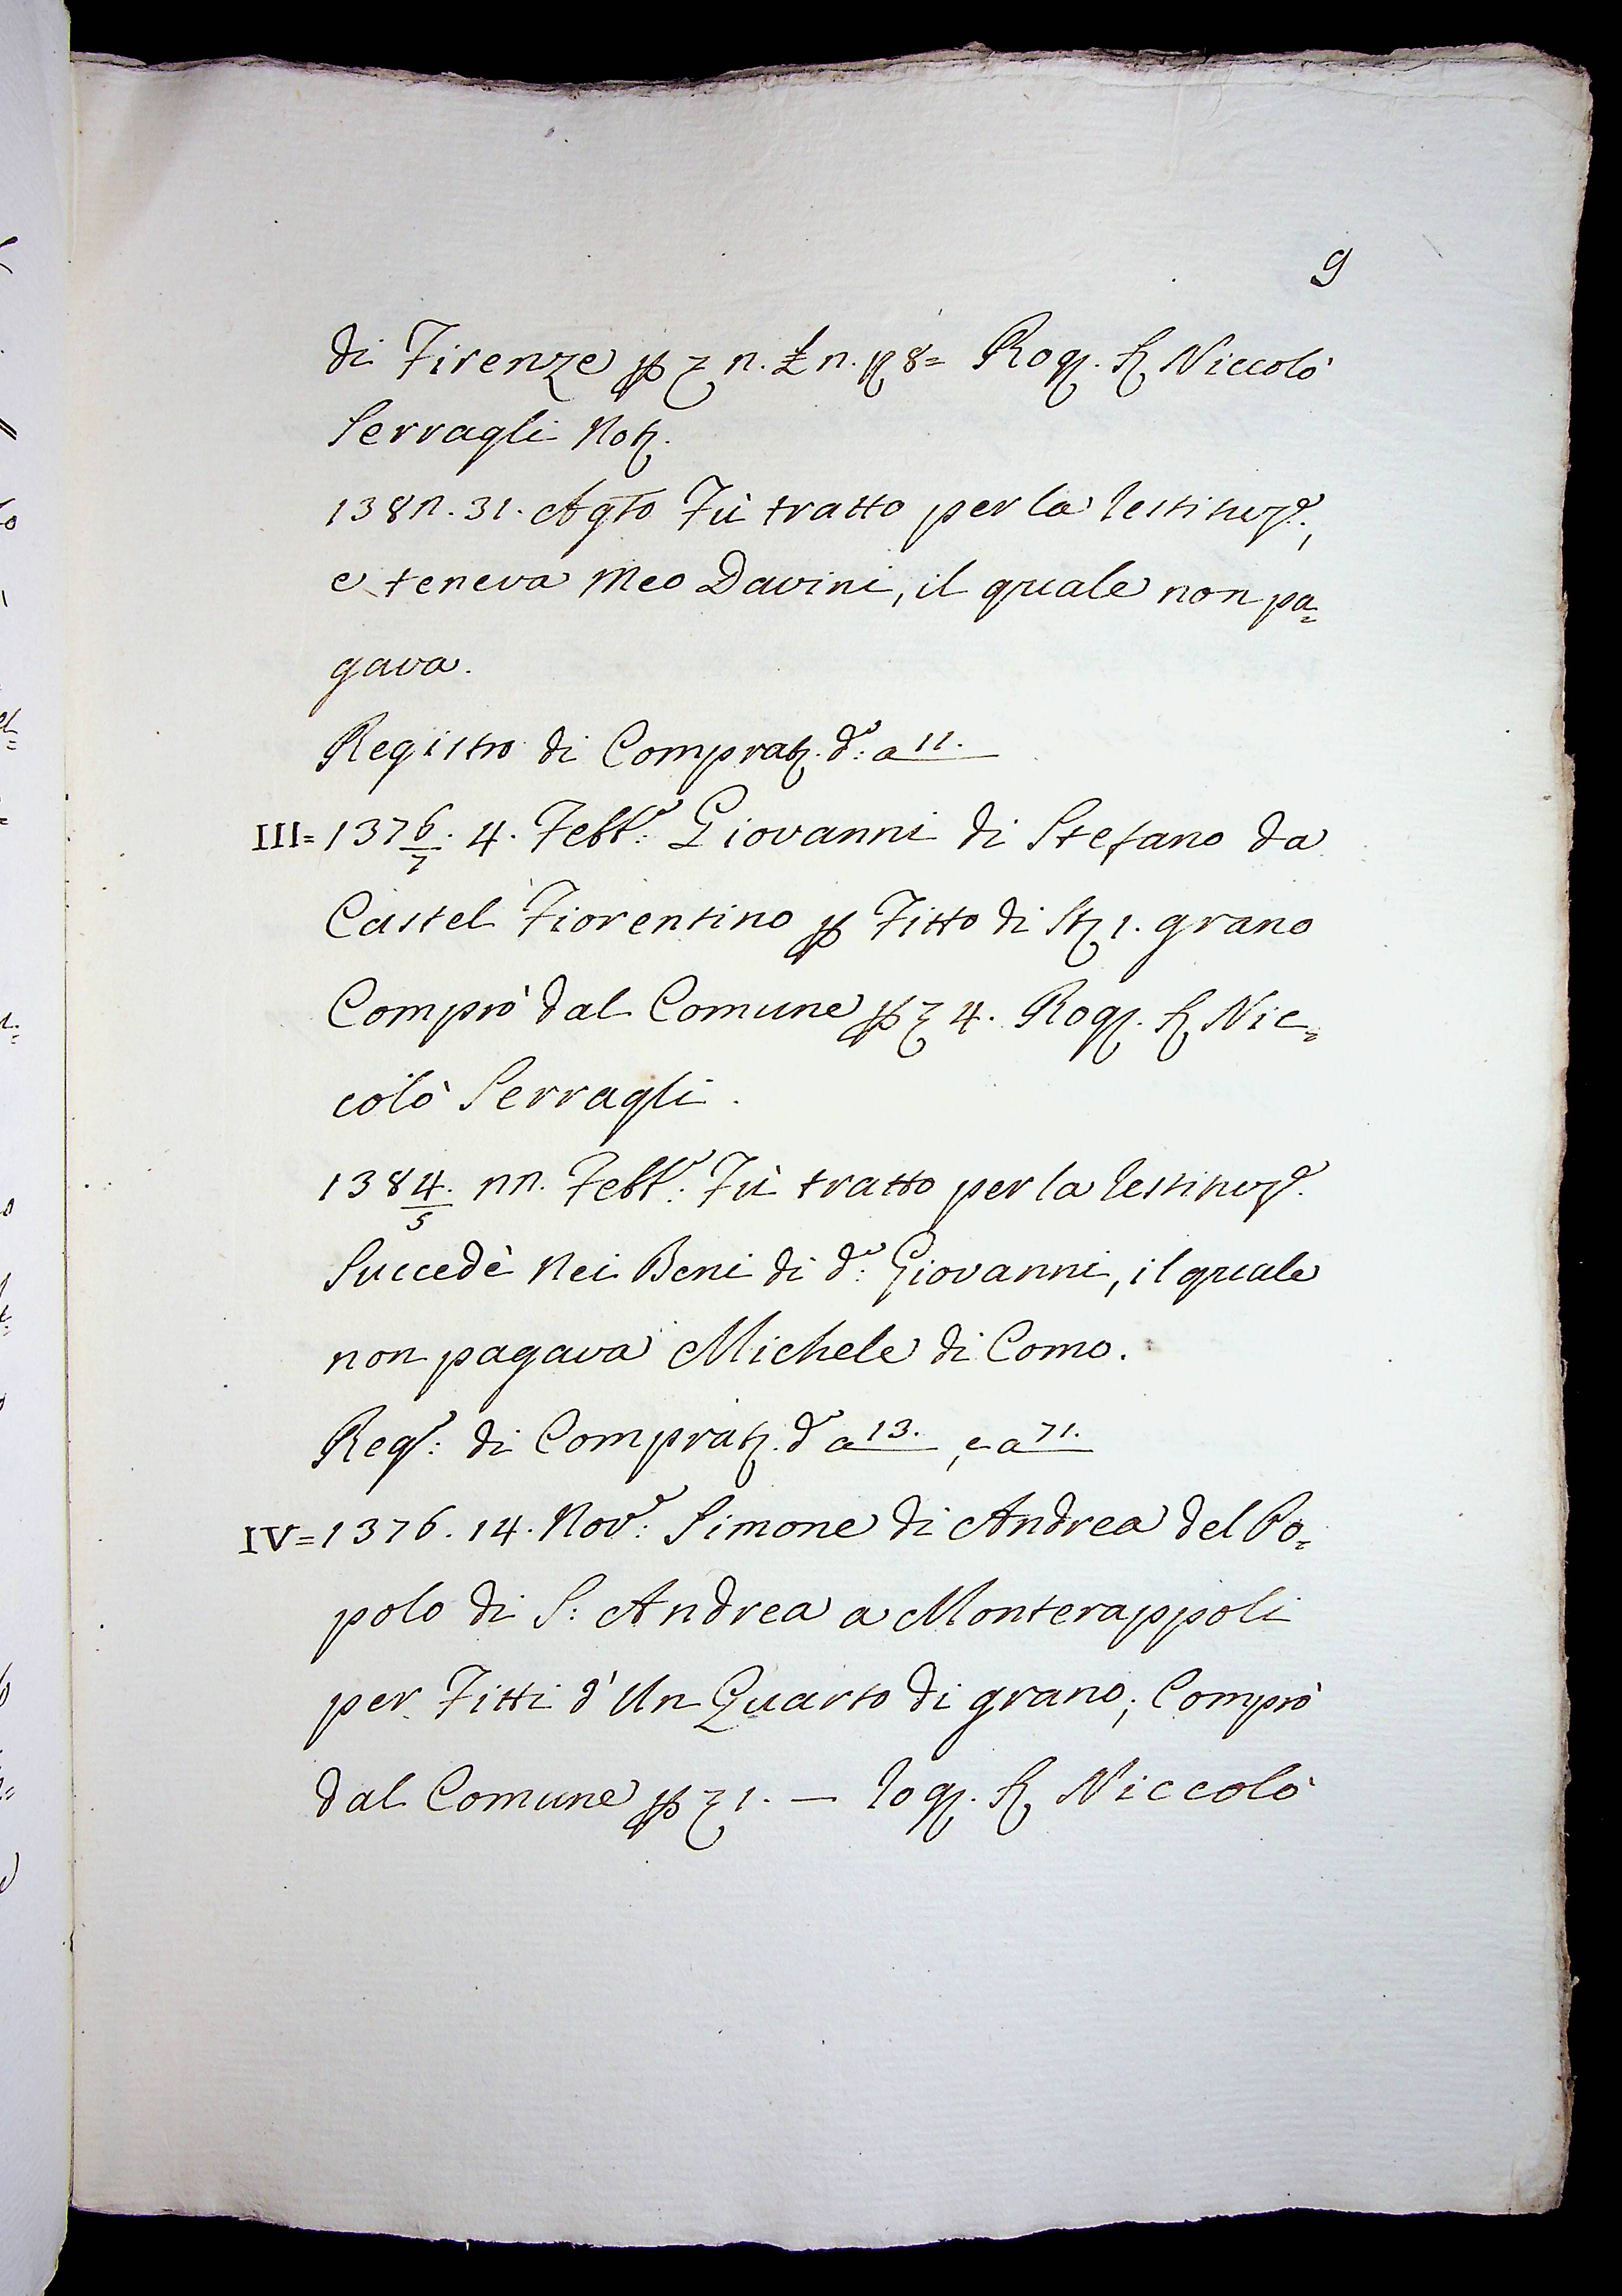 9
di Firenze per ƺ 2. £ 2. ß 8= Rog. S. Niccolò
Serragli Not.
1382. 31. Agto Fù tratto per la restituz.e,
e teneva Meo Davini, il quale non pa=
gava.
Registro di Comprat. d.o: a 11.
III= 1376/7. 4. Febb.o: Giovanni di Stefano da
Castel Fiorentino per Fitto di St. 1. grano
Comprò dal Comune per ƺ 4. Rog. S. Nic=
colò Serragli.
1384/5. 22. Febb.o: Fù tratto per la restituz.e
Succedè nei Beni di d.o: Giovanni, il quale
non pagava Michele di Como.
Reg.o: di Comprat. d.o a 13., e a 71.
IV= 1376. 14. Nov.e: Simone di Andrea del Po=
polo di S: Andrea a Monterappoli
per Fitti d'Un Quarto di grano; Comprò
dal Comune per ƺ 1. — rog. S. Niccolò